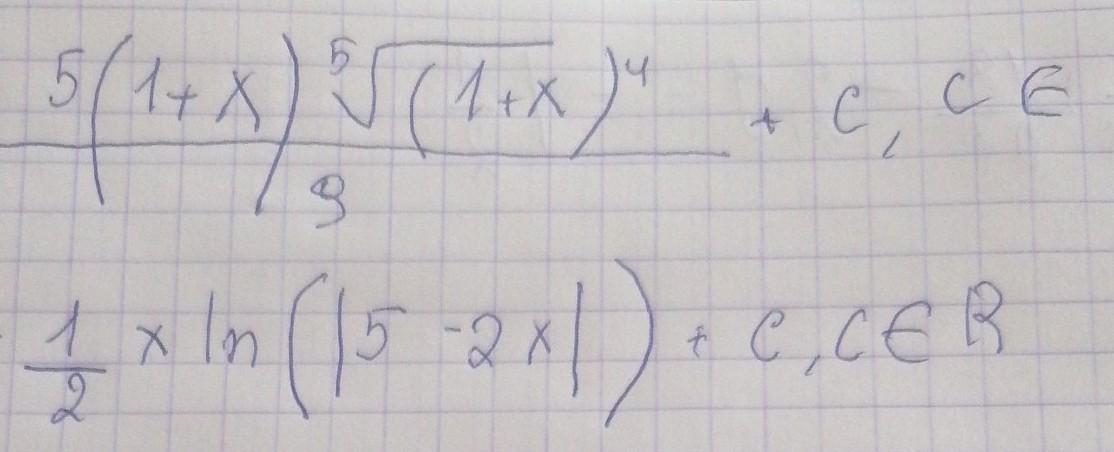 5(1+x) ⁵√(1+x)⁴ / 9 + C, C ∈
1/2 x ln(|5 -2x|) + C, C ∈ R